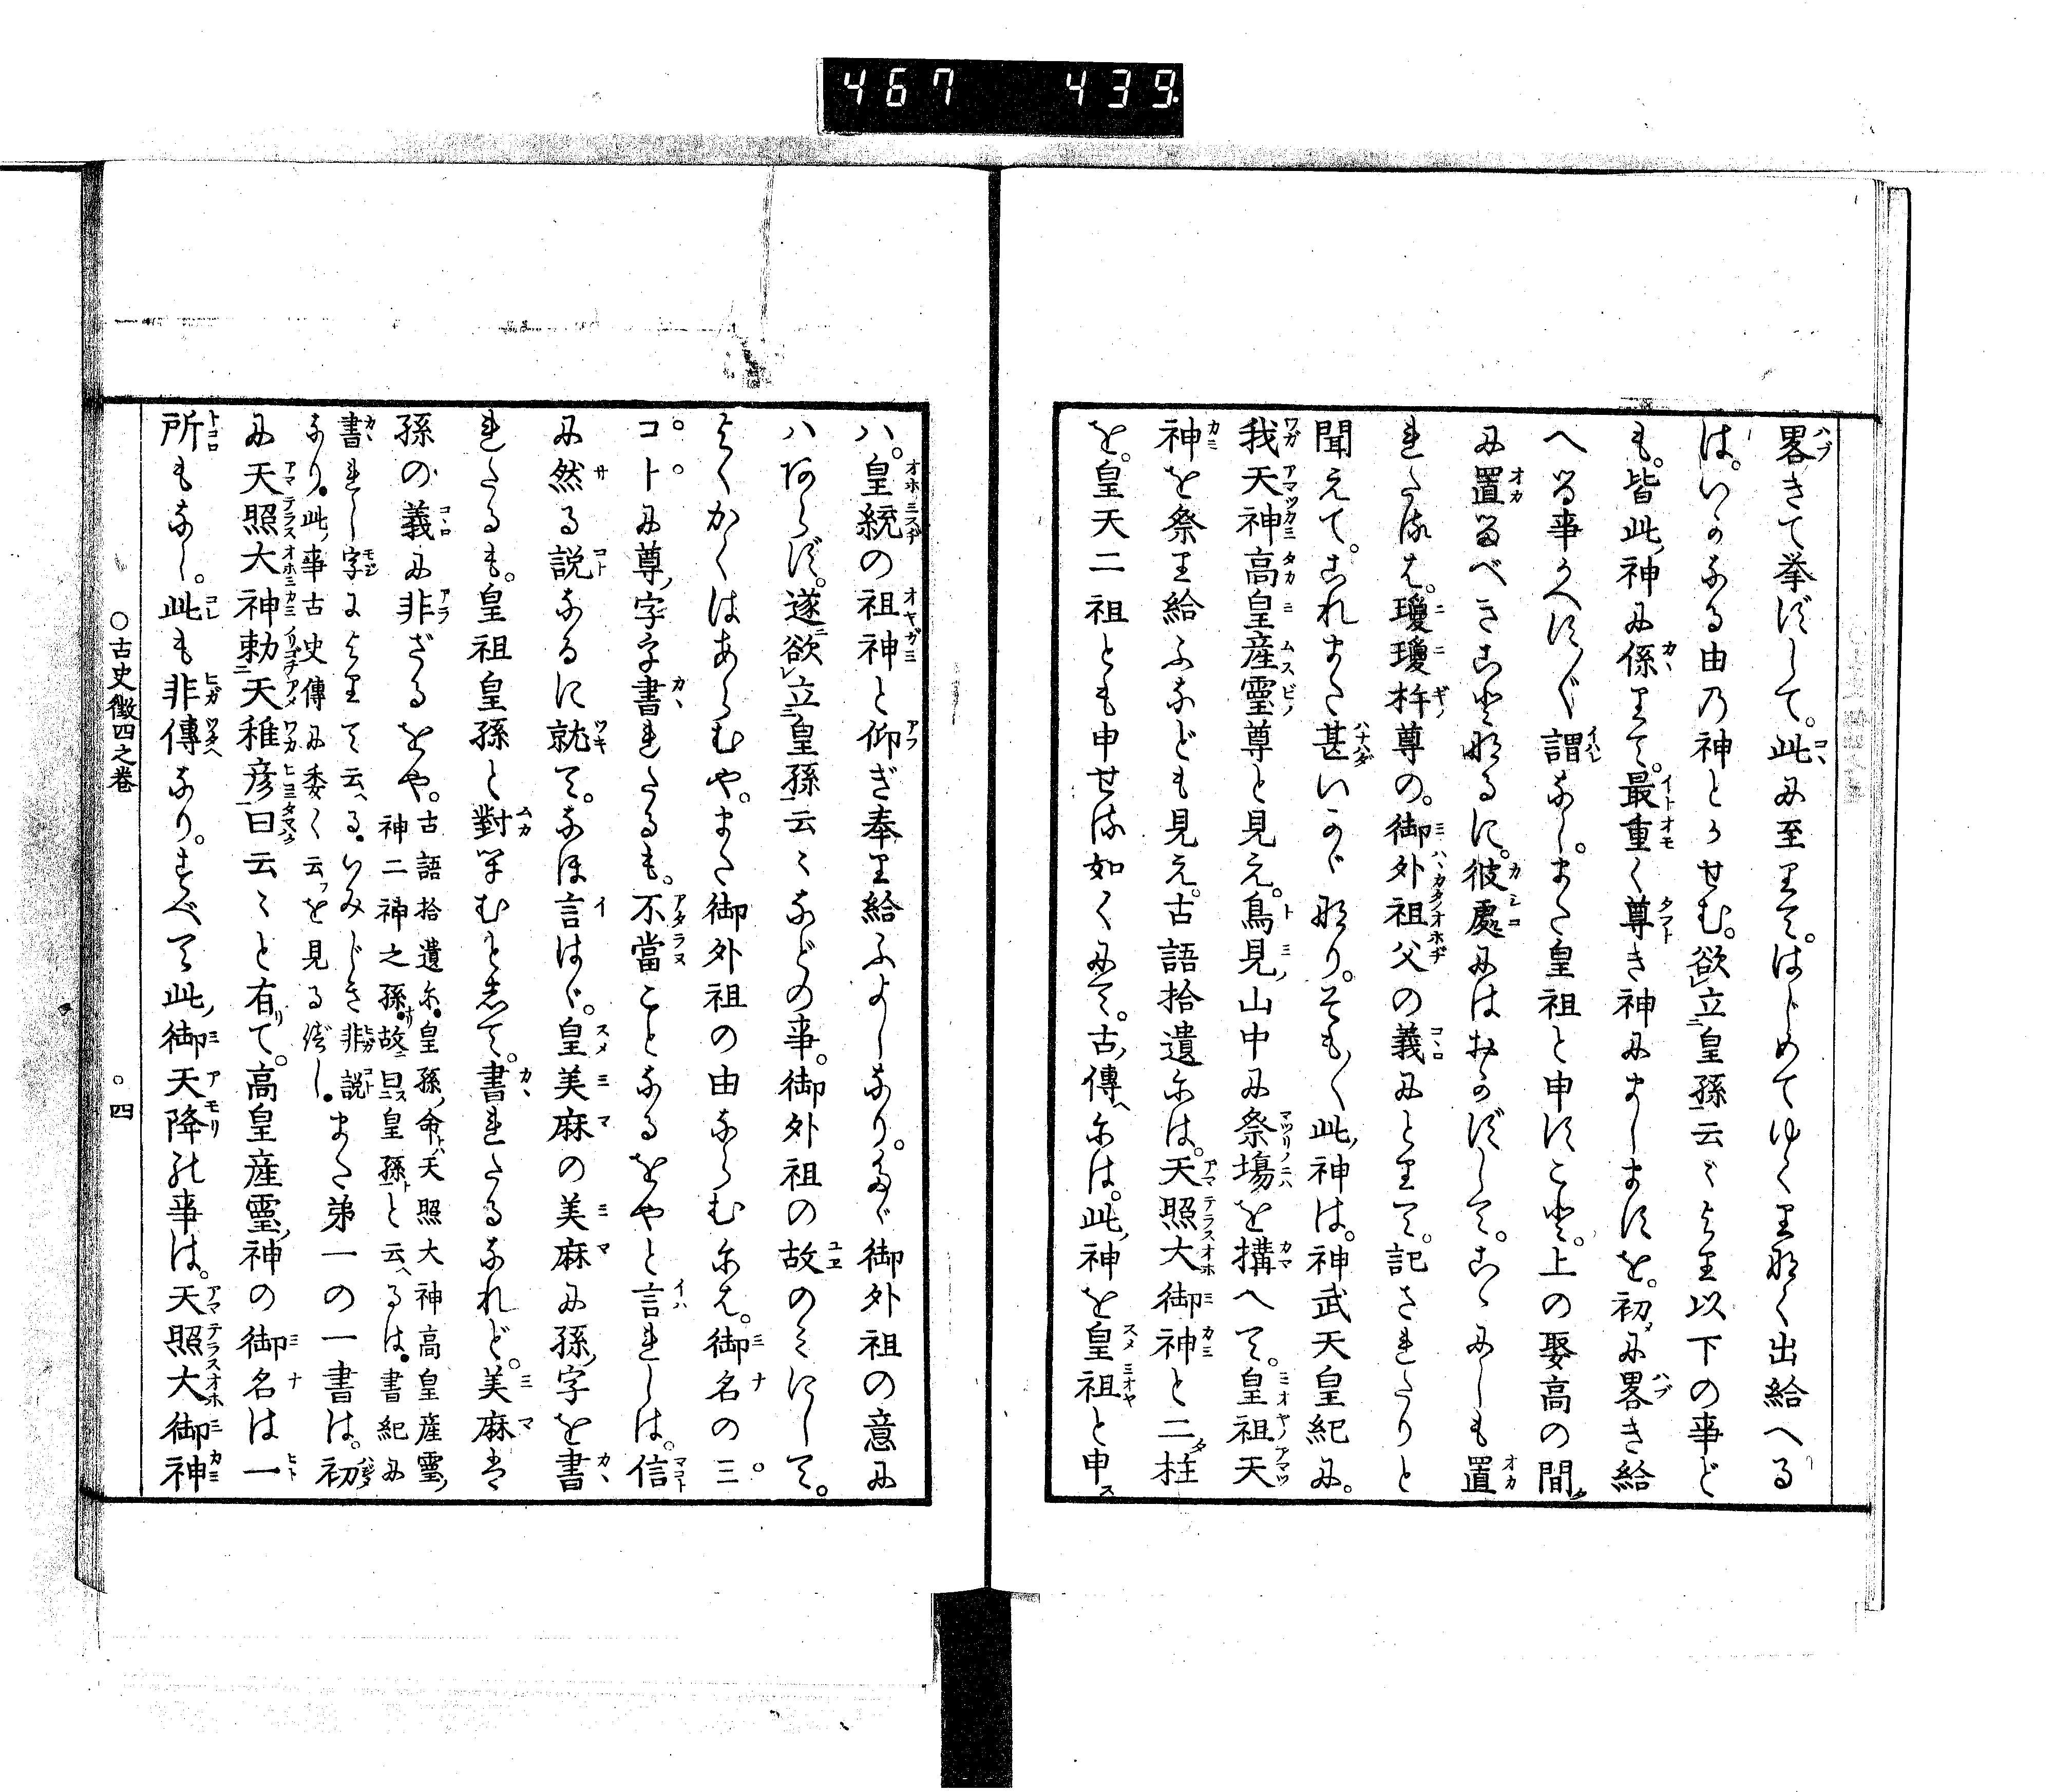 467 439
畧きて挙ずして。此に至りて。はじめてゆくりなく出給へる
は。いかなる由の神とかせむ。欲立皇孫云々より以下の事ど
も。皆此神に係りて。最重く尊き神にましますを。初に畧き給
へる事かへす〴〵謂なし。また皇祖と申すこと。上の娶高の間
に置るべきことなるに。彼處にはおかずして。こゝにしも置
れたるは。瓊瓊杵尊の。御外祖父の義にとりて。記されたりと
聞えて。これまた甚いかゞなり。そも〳〵此神は。神武天皇紀に。
我天神高皇産靈尊と見え。鳥見山中に祭場を搆へて。皇祖天
神を祭り給ふなども見え。古語拾遺には。天照大御神と二柱
を。皇天二祖とも申せる如くにて。古傳には。此神を皇祖と申
ハ。皇統の祖神と仰ぎ奉り給ふよしなり。たゞ御外祖の意に
ハあらず。遂欲立皇孫云々などの事。御外祖の故のみにして。
よくかくはあらむや。また御外祖の由ならむには。御名の三
コトに尊字を書れたるも。不當ことなるをやと言れしは。信
に然る説なるに就て。なほ言はゞ。皇美麻の美麻に孫字を書
れたるも。皇祖皇孫と對へむとして。書れたるなれど。美麻は
孫の義に非ざるをや。古語拾遺に。皇孫命ハ天照大神高皇産靈
神二神之孫。故曰皇孫と云へるは。書紀に
書れし字によりて云へる。いみじき非説
なり。此事古史傳に委く云ふを見るべし。また第一の一書は。初
に天照大神勅天稚彦曰云々と有て。高皇産靈神の御名は一
所もなし。此も非傳なり。すべて此御天降の事は。天照大御神
〇古史徴四之巻
〇四